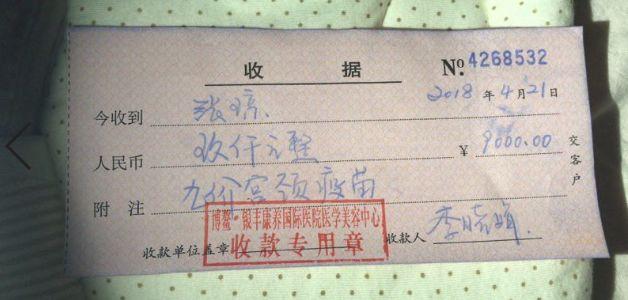 收 据 № 4268532
2018 年 4 月 21 日
今收到 张琼
人民币 玖仟元整 ¥ 9000.00
附 注 九价宫颈疫苗
交客户
博鳌·银丰康养国际医院医学美容中心
收款专用章
收款单位盖章 收款人 李晓娟